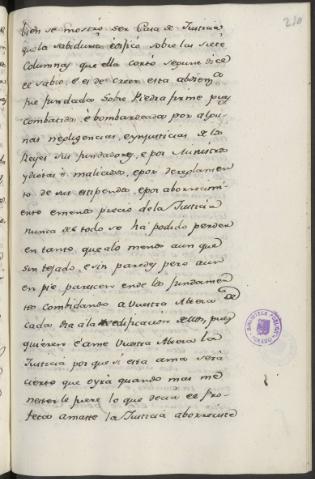 210
bien se mostró ser Casa de Justicia
que la sabiduria edificó sobre las siete
Columnas que ella cortó segun dice
el sabio, è es de creer esta
fue fundada sobre Piedra firme pues
combatida, è bombardeada por algu-
nas negligencias, è ynjusticias de los
Reyes sus fundadores, è por Ministros
ydiotas ò maliciosos, è por
to de sus estipendos, è por aborrecimi-
ento è menos precio de la Justicia
nunca del todo se há podido perder
en tanto, que alo menos aun que
sin tejado, è sin paredes pero aun
en pie parescen ende los fundamen-
tos combidando à Vuestra Alteza
cada dia à la reedificacion dellos, pues
quiere è ama Vuestra Alteza la
Justicia por que si esta ama será
cierto que oyrá quando mas me-
nester le fuere lo que decia el Pro-
feta amaste la Justicia aborreciste
BIBLIOTECA PUBLICA
TOLEDO